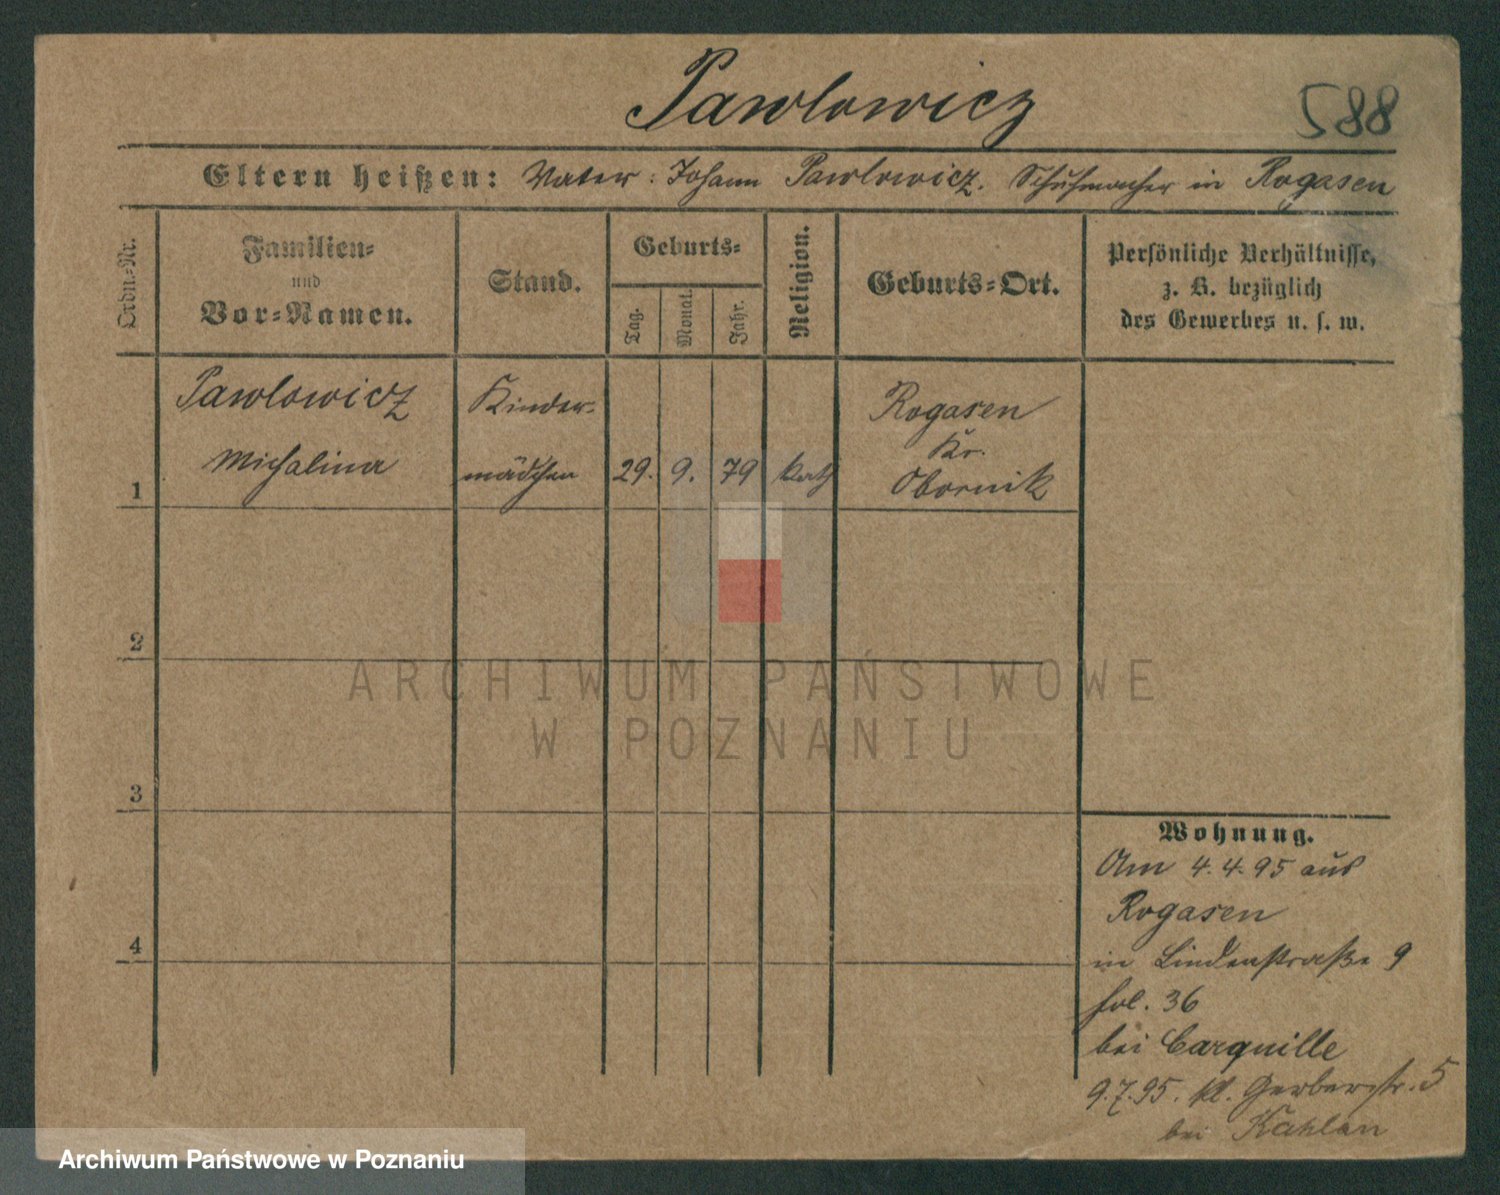 Pawlowicz
588
Eltern heißen: Vater: Johann Pawlowicz. Schuhmacher in Rogasen
Ordn.-Nr.
Familien-
und
Vor-Namen.
Stand.
Geburts-
Tag.
Monat.
Jahr.
Religion.
Geburts-Ort.
Persönliche Verhältnisse,
z. B. bezüglich
des Gewerbes u. s. w.
1
Pawlowicz
Michalina
Kinder-
mädchen
29.
9.
79
kath
Rogasen
Kr.
Obornik
2
3
4
ARCHIWUM PAŃSTWOWE
W POZNANIU
Wohnung.
Am 4.4.95 aus
Rogasen
in Lindenstraße 9
fol. 36
bei Carquille
9.7.95. kl. Gerberstr. 5
bei Kahlan
Archiwum Państwowe w Poznaniu